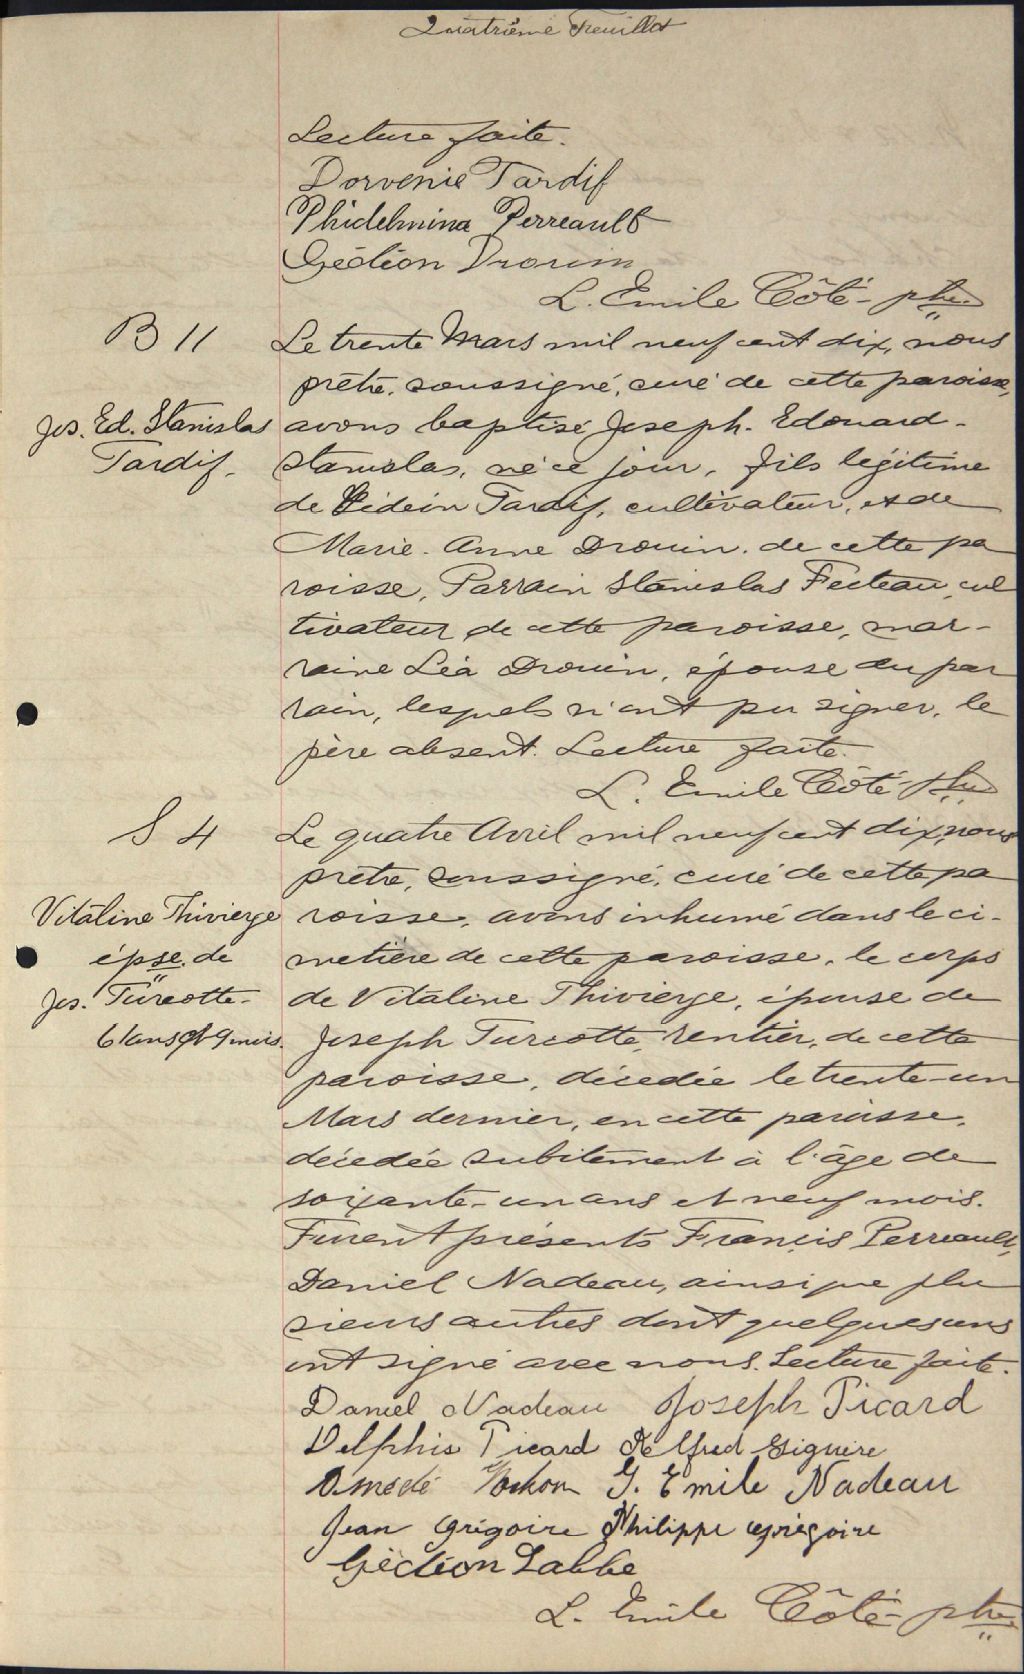 Quatrième Feuillet
Lecture faite.
Dorvenie Tardif
Phidelmina Perreault
Gédéon Drouin
L. Emile Côté - ptre
B 11
Jos. Ed. Stanislas
Tardif.
Le trente Mars mil neuf cent dix, nous
prêtre, soussigné, curé de cette paroisse,
avons baptisé Joseph - Edouard -
Stanislas, né ce jour, fils légitime
de Gédéon Tardif, cultivateur, et de
Marie - Anne Drouin, de cette pa
roisse, Parrain Stanislas Fecteau, cul
tivateur de cette paroisse, mar-
raine Léa Drouin, épouse du par
rain, lesquels n'ont pu signer, le
père absent. Lecture faite.
L. Emile Côté - ptre
S 4
Vitaline Thivierge
épse. de
Jos. Turcotte -
61 ans et 9 mois.
Le quatre Avril mil neuf cent dix, nous
prêtre, soussigné, curé de cette pa
roisse, avons inhumé dans le ci-
metière de cette paroisse, le corps
de Vitaline Thivierge, épouse de
Joseph Turcotte, rentier, de cette
paroisse, décédée le trente-un
Mars dernier, en cette paroisse,
décédée subitement à l'âge de
soixante-un ans et neuf mois.
Furent présents Francis Perreault,
Daniel Nadeau, ainsi que plu
sieurs autres dont quelques uns
ont signé avec nous. Lecture faite.
Daniel Nadeau Joseph Picard
Delphis Picard Alfred Giguère
Amédé G. Emile Nadeau
Jean Grégoire Philippe Grégoire
Gédéon Labbe
L. Emile Côté - ptre